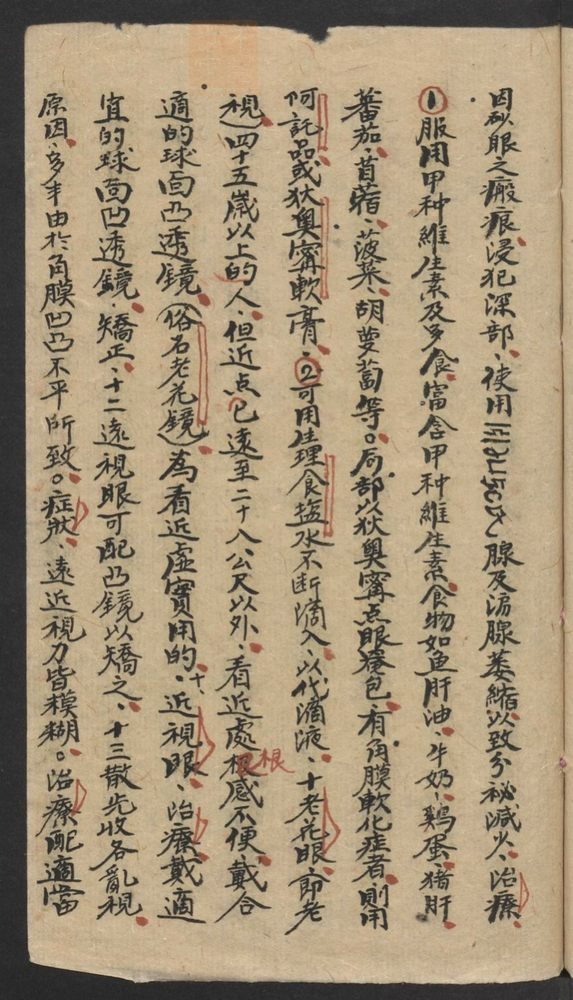 因砂眼之瘢痕、浸犯深部、使用腺及淚腺萎縮以致分祕減少、治療
①服用甲种維生素及多食富含甲种維生素食物如鱼肝油、牛奶、鷄蛋、猪肝
蕃茄、苜蓿、菠菜、胡萝蔔等。局部以狄奥寗点眼󠄁包、有角膜軟化症者、則用
阿託品或狄奥寗軟膏。②可用生理食盐水不断滴入、以代淚液、十老花眼、即老
視、四十五歲以上的人、但近点已遠至二十八公尺以外、看近處根感不便、戴合
適的球面凸透镜、(俗名老花鏡)為看近虛實用的、十、近視眼、治療、戴適
宜的球面凹透鏡、矯正、十二遠視眼可配凸鏡以矯之、十三散光收各亂視
原因、多半由於角膜凹凸不平所致。症狀、遠近視力皆模糊。治療配適當
根